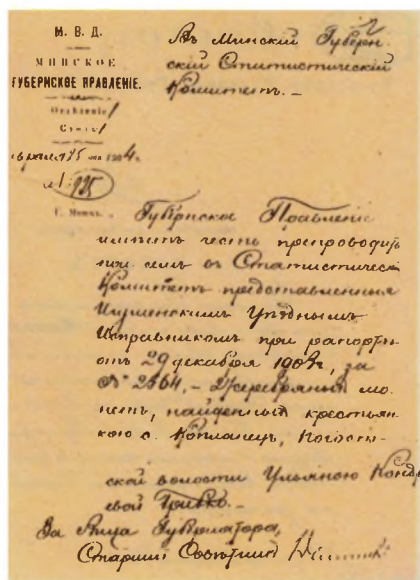 М. В. Д.
МИНСКОЕ
ГУБЕРНСКОЕ ПРАВЛЕНІЕ.
Отдѣленіе 1
Столъ 1
15 1904 г.
№ 925
Г. Минскъ.
2
Въ Минскій Губерн-
скій Статистическій
Комитетъ. –
Губернское Правленіе
имѣетъ честь препроводить
при семъ въ Статистическій
Комитетъ представленныя
Игуменскимъ Уѣзднымъ
Исправникомъ при рапортѣ
отъ 29 декабря 1903 г., за
№ 2664, – серебряныя мо-
нетъ, найденныя крестьян-
кою с. Копланецъ, Погост-
ской волости Ульяною
За Вице Губернатора,
Старшій Совѣтникъ